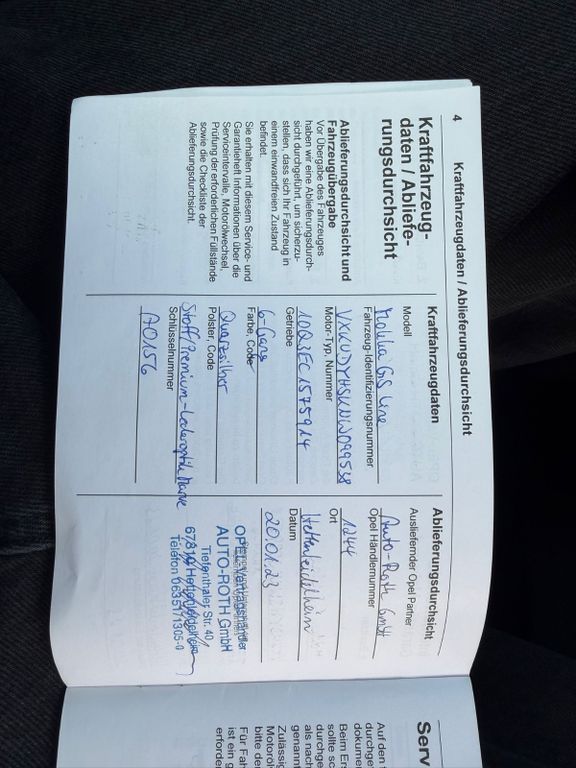 4
Kraftfahrzeugdaten / Ablieferungsdurchsicht
Kraftfahrzeug-
daten / Abliefe-
rungsdurchsicht
Ablieferungsdurchsicht und
Fahrzeugübergabe
Vor Übergabe des Fahrzeuges
haben wir eine Ablieferungsdurch-
sicht durchgeführt, um sicherzu-
stellen, dass sich Ihr Fahrzeug in
einem einwandfreien Zustand
befindet.
Sie erhalten mit diesem Service- und
Garantieheft Informationen über die
Serviceintervalle, Motorölwechsel,
Prüfung der erforderlichen Füllstände
sowie die Checkliste der
Ablieferungsdurchsicht.
Kraftfahrzeugdaten
Modell
Mokka GS Line
Fahrzeug-Identifizierungsnummer
VXKUDYHSKNW099538
Motor-Typ, Nummer
10Q3EC1575914
Getriebe
6-Gang
Farbe, Code
Quarzsilber
Polster, Code
Stoff/Premium-Lederoptik
Schlüsselnummer
A0156
Ablieferungsdurchsicht
Ausliefernder Opel Partner
Auto-Roth GmbH
Opel Händlernummer
1244
Ort
Hettenleidelheim
Datum
20.01.23
OPEL-Vertragshändler
AUTO-ROTH GmbH
Tiefenthaler Str. 40
67310 Hettenleidelheim
Telefon 06351/1305-0
Serv
Auf den
durchge
dokume
Beim Er
sollte s
durchge
als nach
genann
Zuläss
Motorö
bitte de
Für Fa
ist ein g
erforde